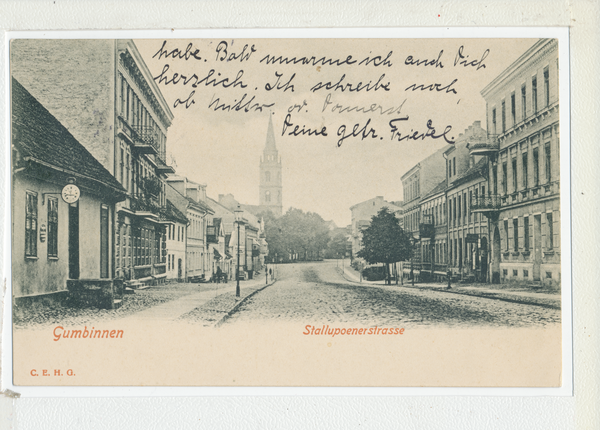 habe. Bald umarme ich auch Dich
herzlich. Ich schreibe noch,
ob Mittw. od. Donnerst
Deine getr. Friedel.
Gumbinnen
Stallupoenerstrasse
C. E. H. G.